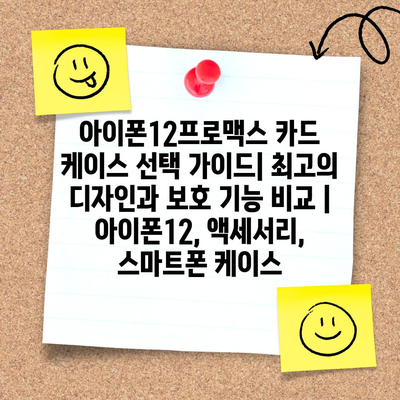 아이폰12프로맥스 카드
케이스 선택 가이드| 최고의
디자인과 보호 기능 비교 |
아이폰12, 액세서리,
스마트폰 케이스